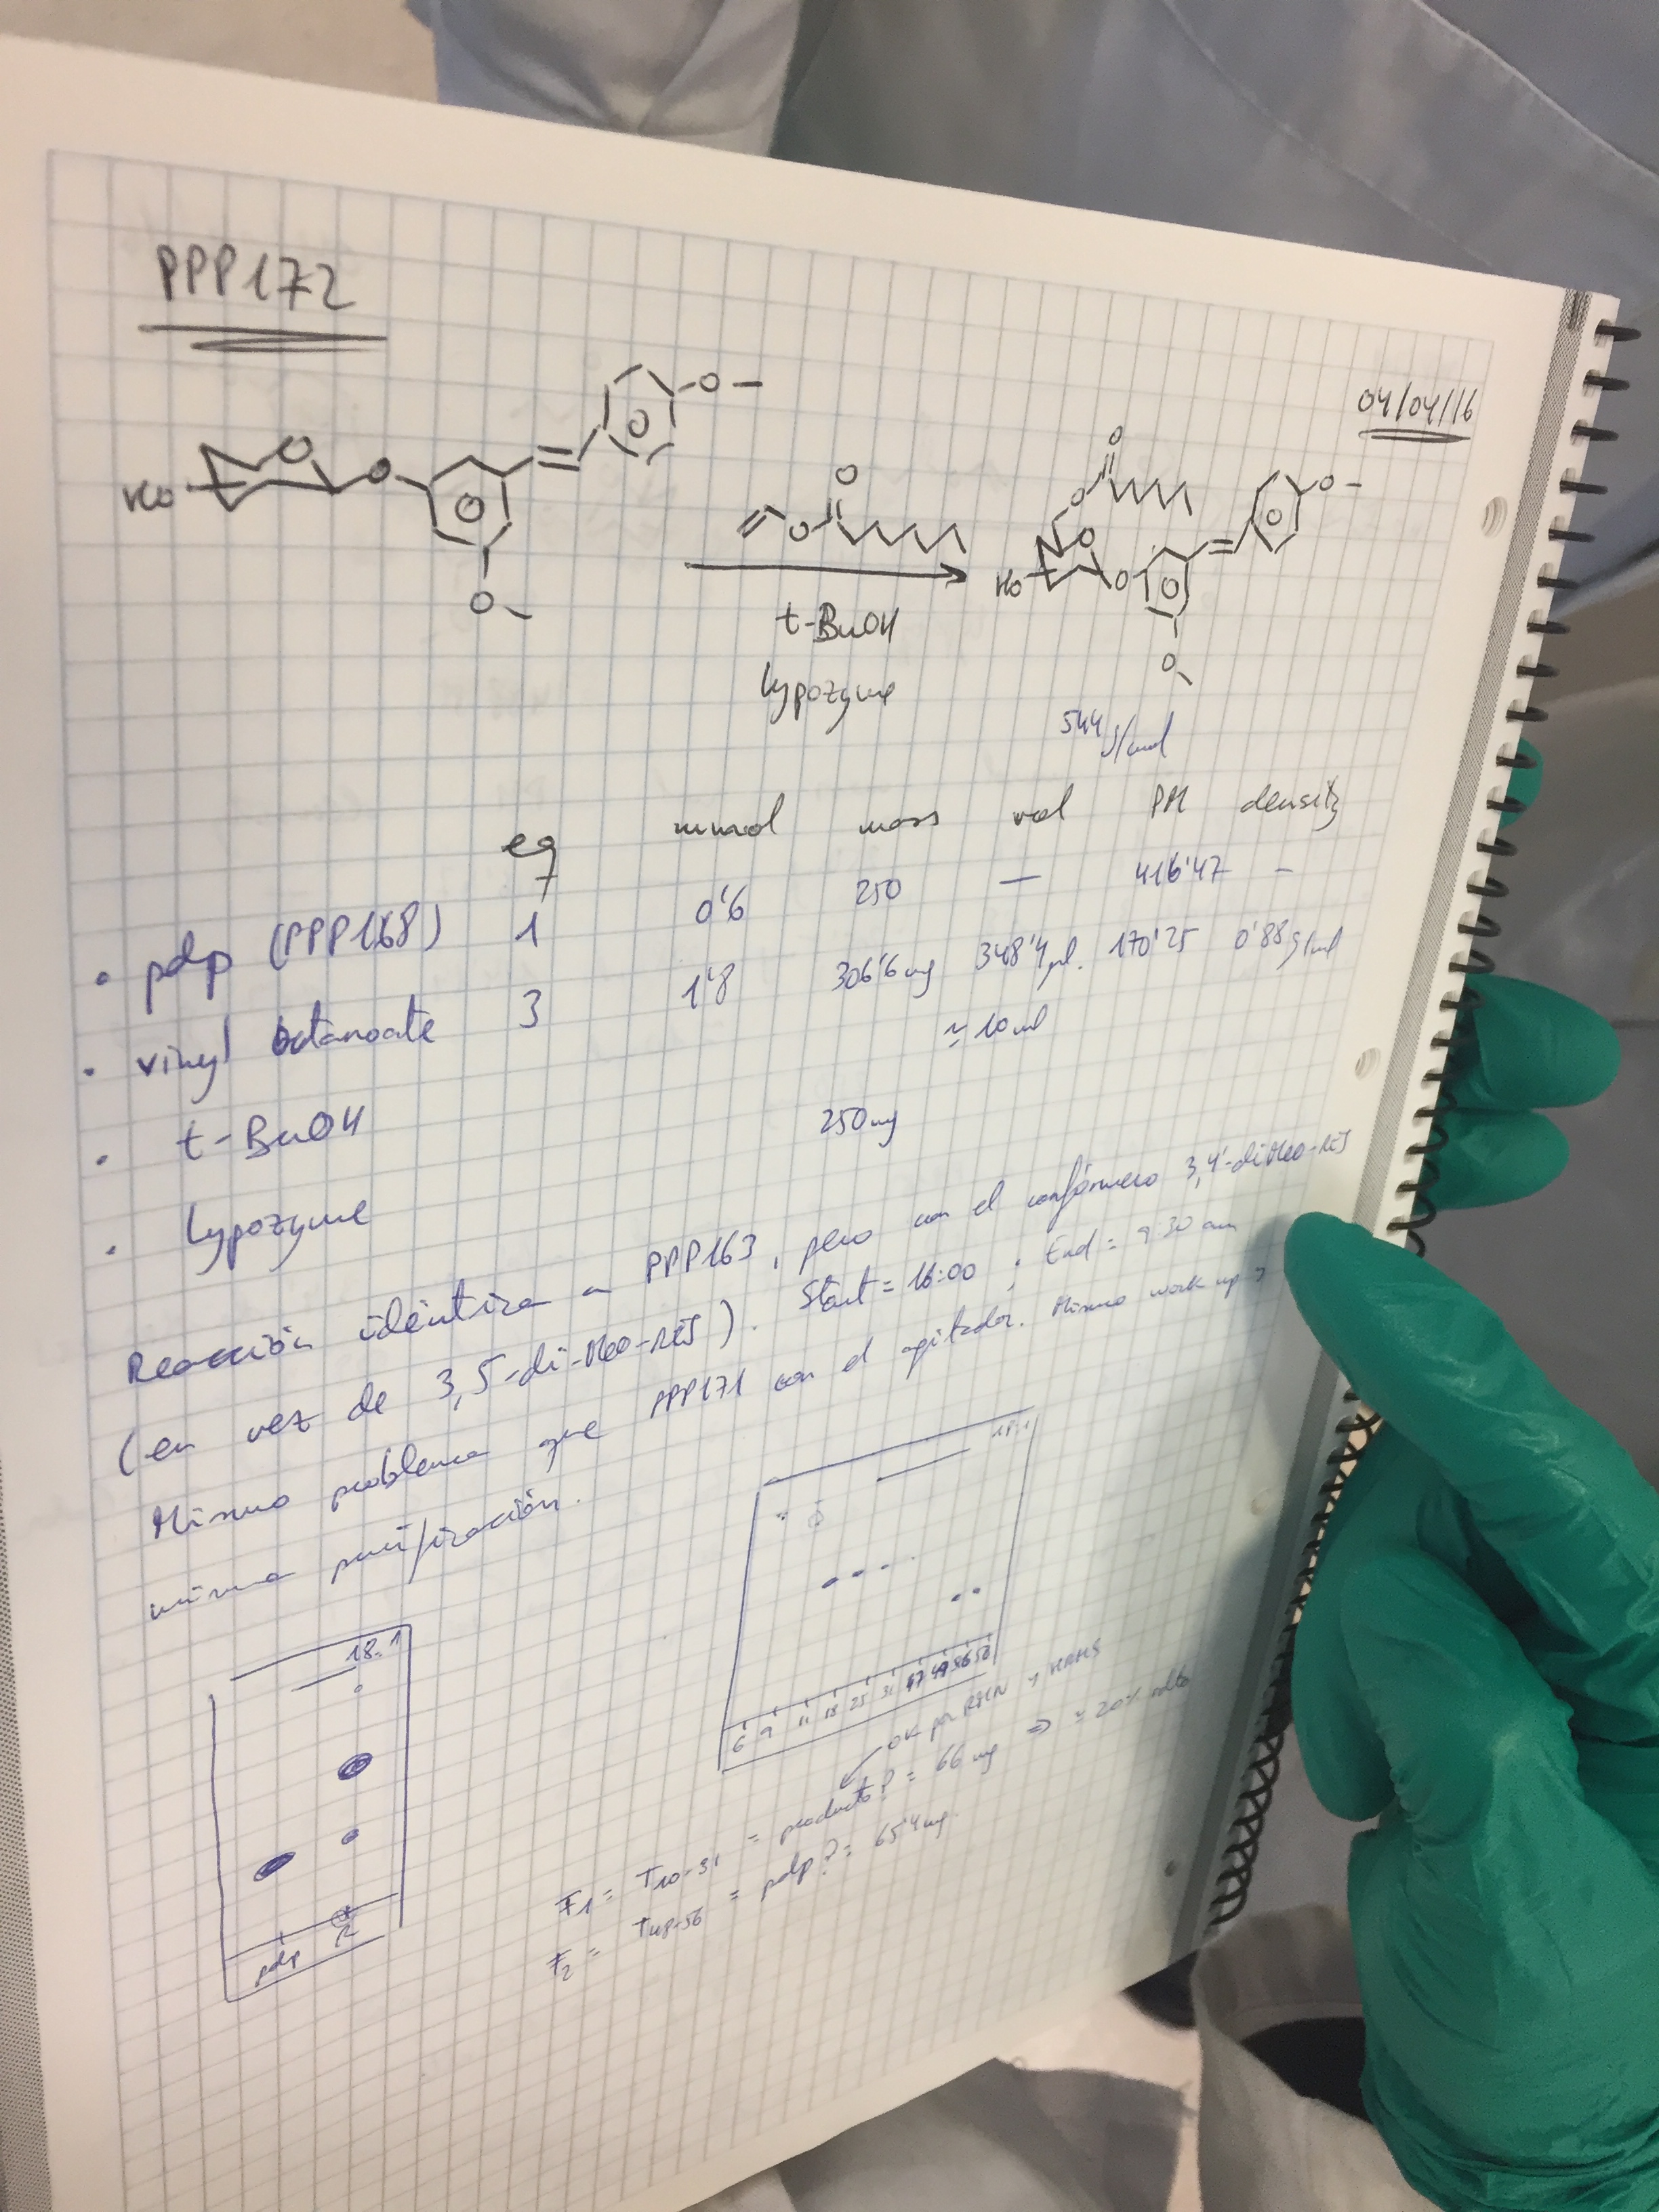 PPP172
04/04/16
HO O O O O
O O
t-BuOH
Lypozyme
O O O HO O O O
544 g/mol
eq mmol mass vol PM density
• pdp (PPP168) 1 0'6 250 — 416'47 –
• vinyl octanoate 3 1'8 306'6 mg 348'4 μl. 170'25 0'88 g/ml
• t-BuOH ≃ 10 ml
• Lypozyme 250 mg
Reacción idéntica a PPP163, pero con el confórmero 3,4'-diMeO-RES
(en vez de 3,5-di-MeO-RES). Start = 16:00 ; End = 9 30 am
Mismo problema que PPP171 con el agitador. Mismo work up y
misma purificación.
18:1
pdp R
18:1
6 9 11 18 25 31 47 49 56 58
OK por RMN y HRMS
F1 = T10-31 = producto? = 66 mg ⇒ ≃ 20% rdto
F2 = T48-56 = pdp? = 65'4 mg.